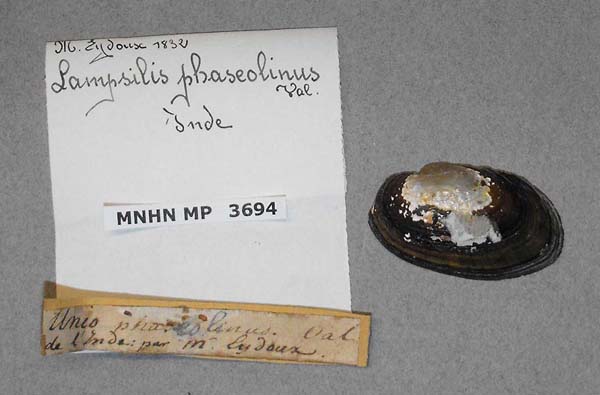 M. Eydoux 1832
Lampsilis phaseolinus
Val.
Inde
MNHN MP 3694
Unio phaseolinus. Val
de l'Inde: par Mr. Eydoux.